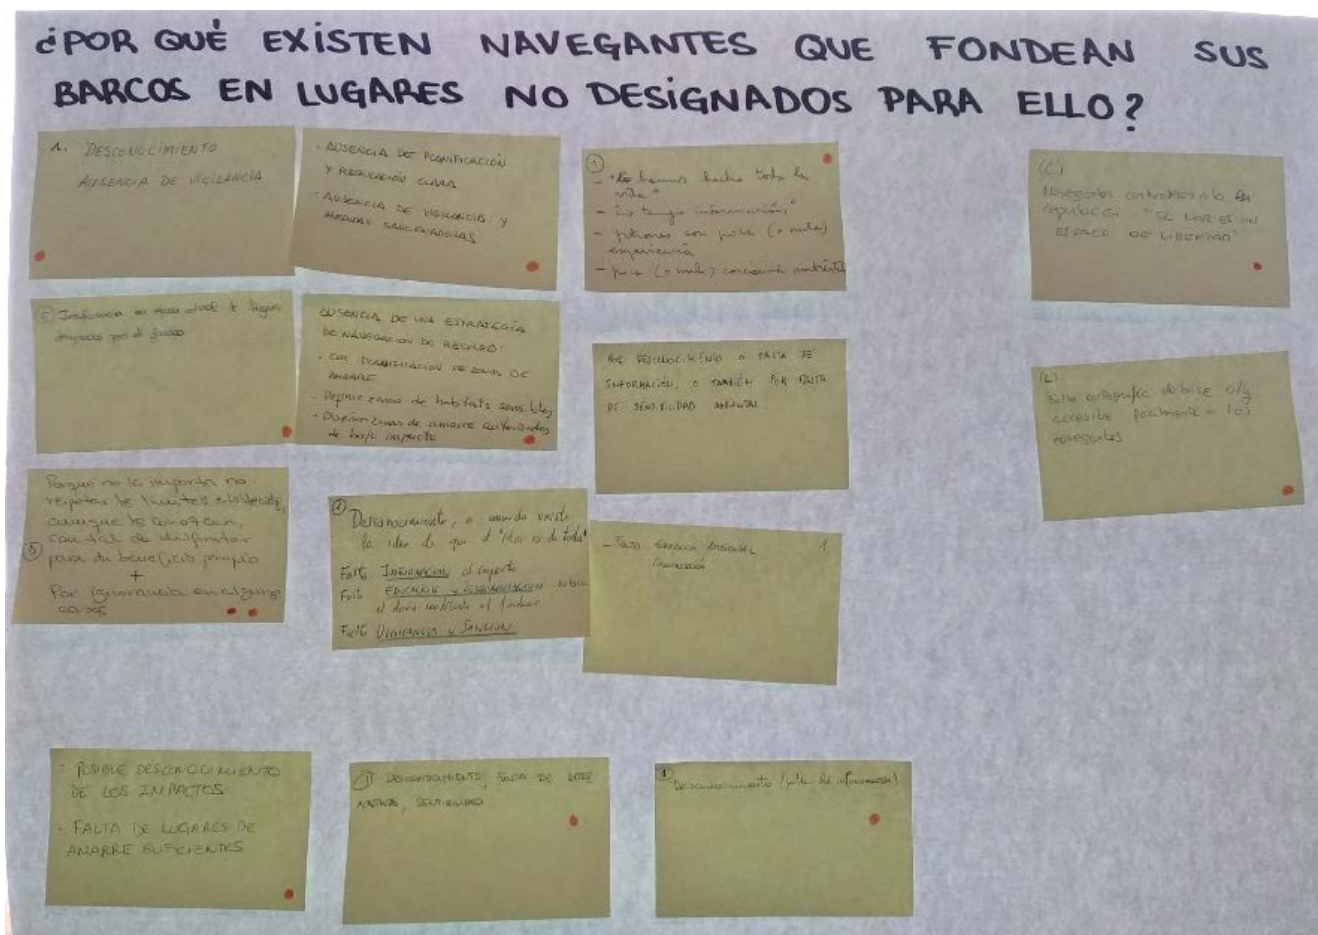 ¿POR QUÉ EXISTEN NAVEGANTES QUE FONDEAN SUS
BARCOS EN LUGARES NO DESIGNADOS PARA ELLO?
1. DESCONOCIMIENTO
AUSENCIA DE VIGILANCIA
- AUSENCIA DE PLANIFICACIÓN
Y REGULACIÓN CLARA
- AUSENCIA DE VIGILANCIA Y
MEDIDAS SANCIONADORAS
1
- "Lo hemos hecho toda la
vida"
- "no tengo información"
- patrones con poca (o nula)
experiencia
- poca (o nula) conciencia
(C)
Navegantes contrarios a la
regulación "EL MAR ES UN
ESPACIO DE LIBERTAD"
en donde se
por el fondeo
AUSENCIA DE UNA ESTRATEGIA
DE NAVEGACIÓN DE RECREO:
- CON PLANIFICACIÓN DE ZONAS DE
AMARRE
- Definir zonas de habitats sensibles
- Diseñar zonas de amarre autorizados
de bajo impacto
POR DESCONOCIMIENTO O FALTA DE
INFORMACIÓN, O TAMBIÉN POR FALTA
DE SENSIBILIDAD AMBIENTAL
(L)
Falta de base
accesible facilmente a los
navegantes
Porque no le importa no
respetar los limites establecidos,
aunque los conozcan,
con tal de disfrutar
para su beneficio propio
+
Por ignorancia en algunos
casos
1
Desconocimiento, a menudo existe
la idea de que el "Mar es de todos"
Falta INFORMACIÓN al respecto
Falta EDUCACIÓN y SENSIBILIZACIÓN sobre
el daño realizado al fondear
Falta VIGILANCIA y SANCIÓN
- FALTA AMBIENTAL 1
- POSIBLE DESCONOCIMIENTO
DE LOS IMPACTOS
- FALTA DE LUGARES DE
AMARRE SUFICIENTES
1 DESCONOCIMIENTO, FALTA DE ALTER
NATIVAS, SENSIBILIDAD
1
Desconocimiento (falta de información)